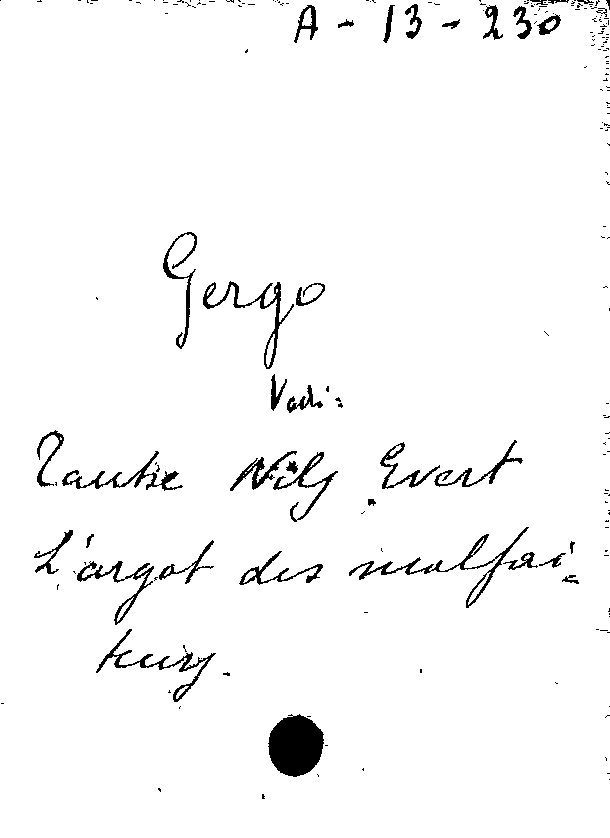 A - 13 - 230
Gergo
Vedi:
Taube Nils Evert
L'argot des malfai=
teurs.